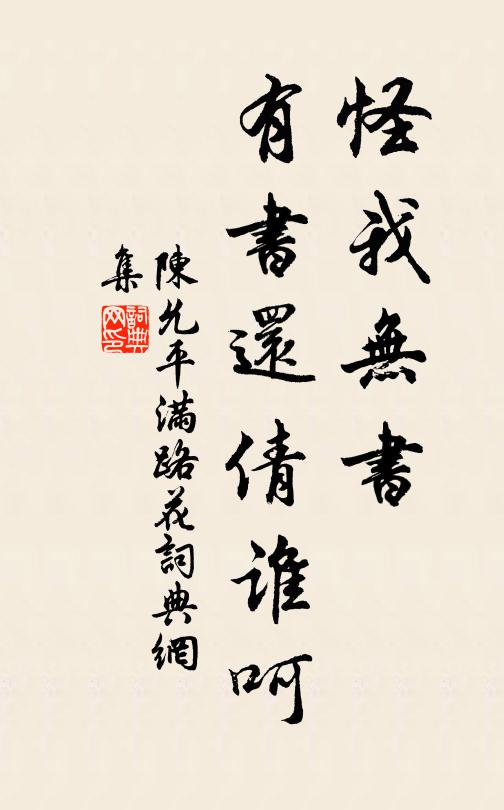 怪我無書
有書還倩誰呵
陳允平滿路花詞典網
集
詞典
网印